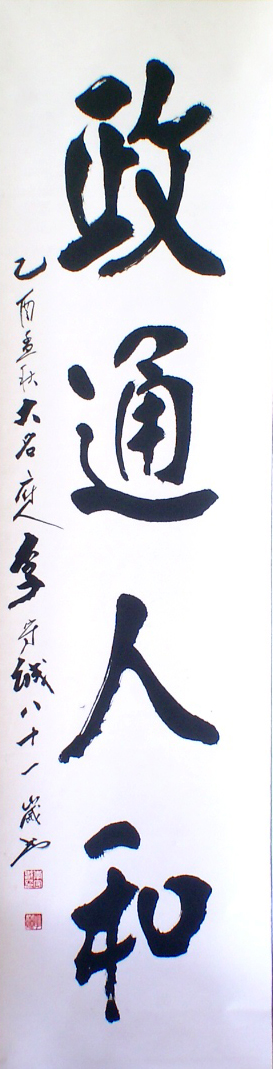 政通人和
乙酉孟秋大名府人李守诚八十一歲书